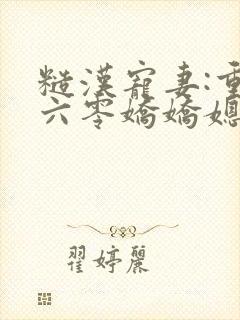 糙漢寵妻:重
六零嬌嬌媳
翟婷麗